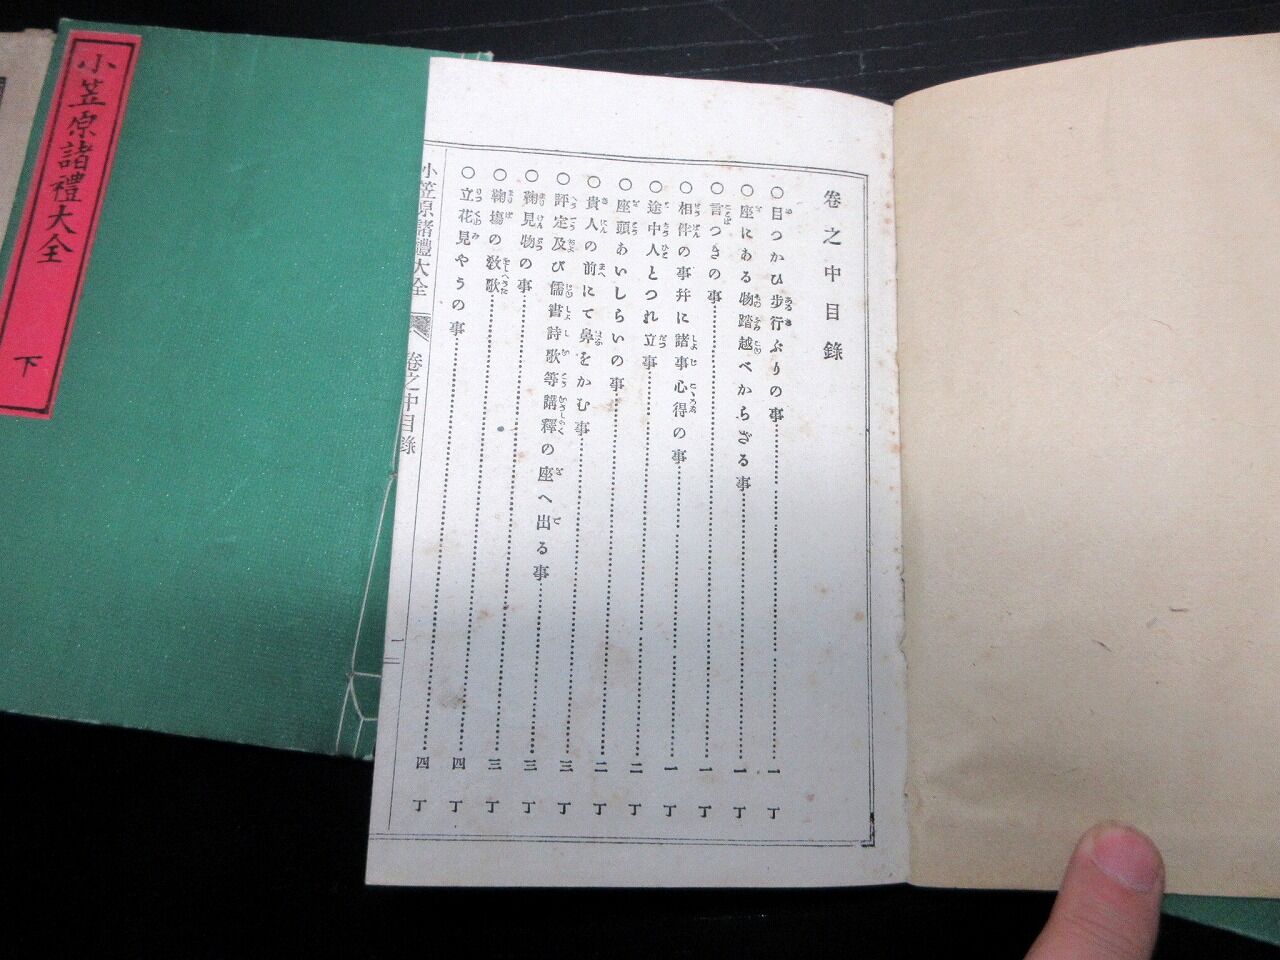 卷之中目錄
○目つかひ歩行ぶりの事……一丁
○座にある物踏越べからざる事……一丁
○言つきの事……一丁
○相伴の事幷に諸事心得の事……一丁
○途中人とつれ立事……二丁
○座頭あいしらいの事……二丁
○貴人の前にて鼻をかむ事……三丁
○評定及び儒書詩歌等講釋の座へ出る事……三丁
○鞠見物の事……三丁
○鞠塲の敎歌……四丁
○立花見やうの事……四丁
小笠原諸禮大全 卷之中目錄 一
小笠原諸禮大全 下